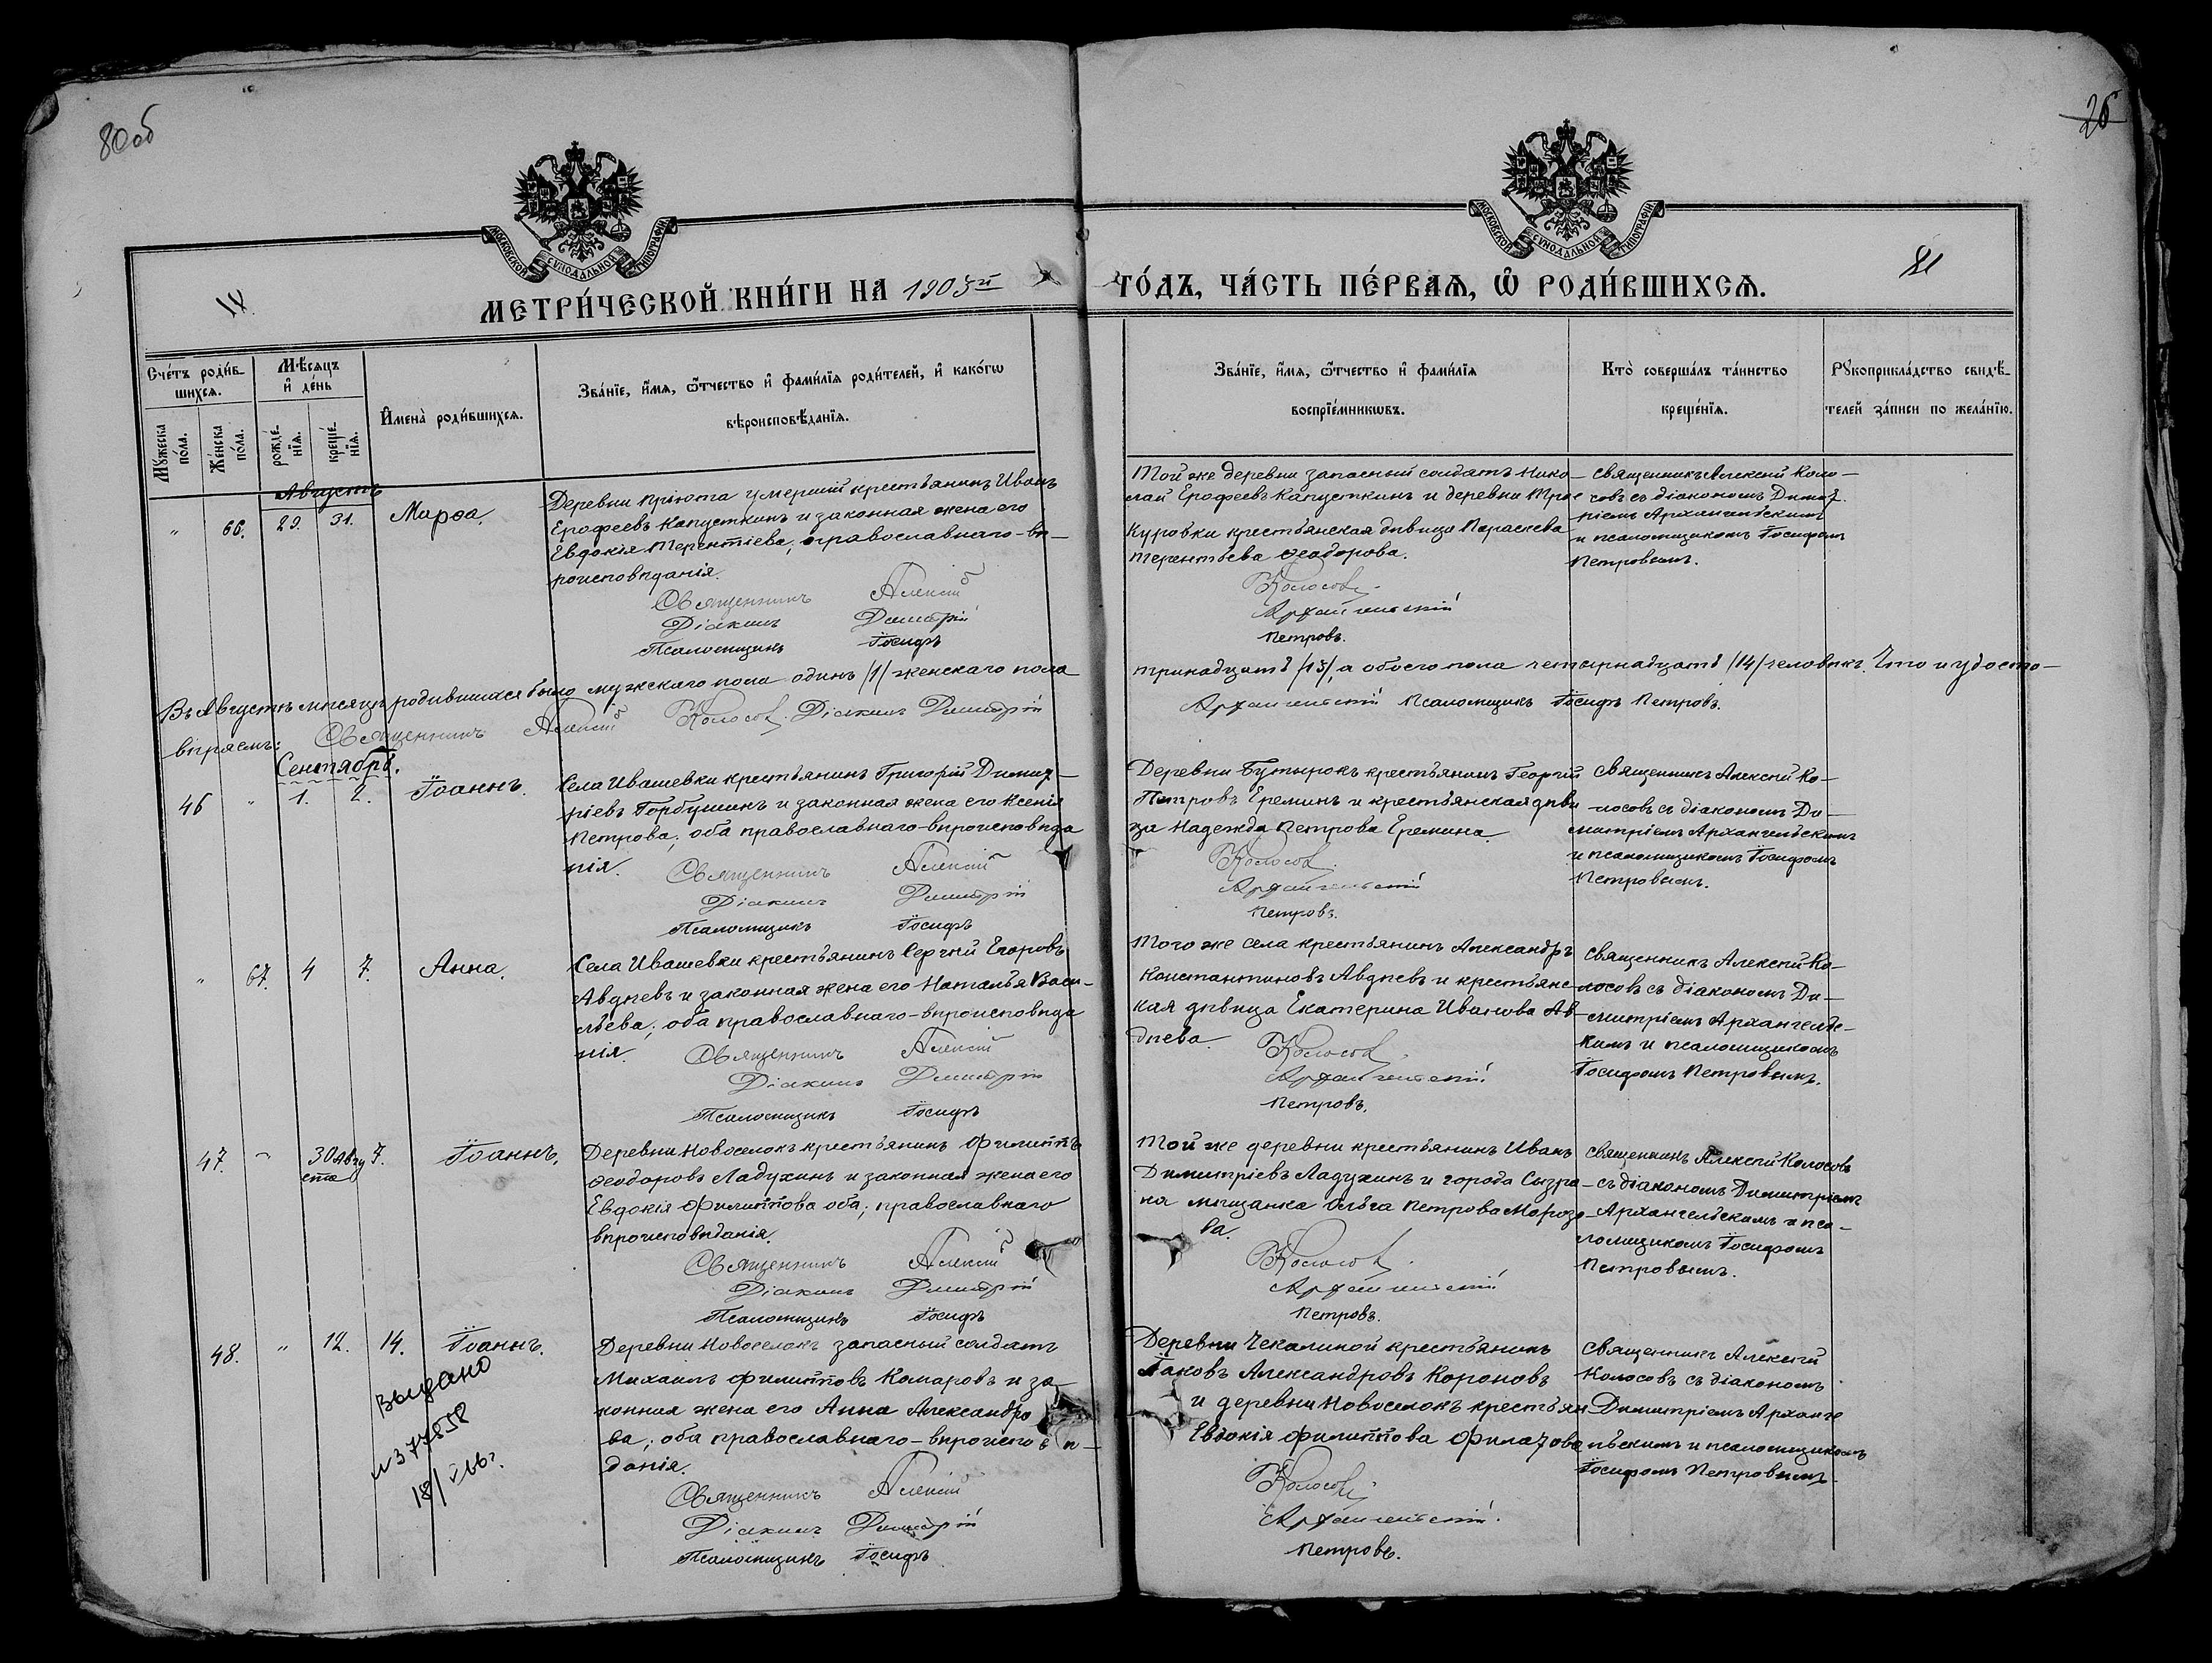 80об
26
МОСКОВСКОЙ СѴНОДАЛЬНОЙ ТИПОГРАФІИ
МОСКОВСКОЙ СѴНОДАЛЬНОЙ ТИПОГРАФІИ
IX.
81
МЕТРИ́ЧЕСКОЙ КНИ́ГИ НА 1903й
ГО́ДЪ, ЧА́СТЬ ПЕ́РВАѦ, Ѡ҆ РОДИ́ВШИХСѦ.
Сче́тъ роди́в-
шихсѧ.
Мѣ́сѧцъ
и҆ де́нь
Му́жеска
по́ла.
Же́нска
по́ла.
рожде́-
нїѧ.
креще́-
нїѧ.
И҆мена̀ роди́вшихсѧ.
Зва́нїе, и҆́мѧ, ѻ҆́тчество и҆ фами́лїѧ роди́телей, и҆ како́гѡ
вѣроисповѣ́данїѧ.
Зва́нїе, и҆́мѧ, ѻ҆́тчество и҆ фами́лїѧ
воспрїе́мникѡвъ.
Кто̀ соверша́лъ та́инство
креще́нїѧ.
Рꙋкоприкла́дство свидѣ́-
телей за́писи по жела́нїю.
Августъ
" 66. 29. 31. Марѳа.
Деревни Пріюта умершій крестьянинъ Иванъ
Ерофеевъ Капусткинъ и законная жена его
Евдокія Терентіева, православнаго-вѣ-
роисповѣданія.
Священникъ Алексій
Діаконъ Димитрій
Псаломщикъ Іосифъ
Той же деревни запасный солдатъ Нико-
лай Ерофеевъ Капусткинъ и деревни Трое
Куровки крестьянская дѣвица Параскева
Терентьева Ѳеодорова.
Колосовъ
Архангельскій
Петровъ.
Священникъ Алексій Коло-
совъ съ діакономъ Димит-
ріемъ Архангельскимъ
и псаломщикомъ Іосифомъ
Петровымъ.
Въ Августѣ мѣсяцѣ родившихся было мужскаго пола одинъ /1/ женскаго пола
тринадцать /13/, а обоего пола четырнадцать /14/ человѣкъ. Что и удосто-
вѣряемъ: Священникъ Алексій Колосовъ. Діаконъ Димитрій
Архангельскій Псаломщикъ Іосифъ Петровъ.
Сентябрь.
46 " 1. 2. Іоаннъ.
Села Ивашевки крестьянинъ Григорій Димит-
ріевъ Горбушинъ и законная жена его Ксенія
Петрова; оба православнаго-вѣроисповѣда
нія.
Священникъ Алексій
Діаконъ Димитрій
Псаломщикъ Іосифъ
Деревни Бутырокъ крестьянинъ Георгій
Петровъ Ереминъ и крестьянская дѣви
ца Надежда Петрова Еремина.
Колосовъ.
Архангельскій
Петровъ.
Священникъ Алексій Ко-
лосовъ съ діакономъ Ди-
митріемъ Архангельскимъ
и псаломщикомъ Іосифомъ
Петровымъ.
" 67. 4 7. Анна.
Села Ивашевки крестьянинъ Сергѣй Егоровъ
Авдѣевъ и законная жена его Наталья Васи-
льева; оба православнаго-вѣроисповѣда
нія.
Священникъ Алексій
Діаконъ Димитрій
Псаломщикъ Іосифъ
Того же села крестьянинъ Александръ
Константиновъ Авдѣевъ и крестьянс-
кая дѣвица Екатерина Иванова Ав-
дѣева.
Колосовъ.
Архангельскій
Петровъ.
Священникъ Алексій Ко-
лосовъ съ діакономъ Ди-
митріемъ Архангельс-
кимъ и псаломщикомъ
Іосифомъ Петровымъ.
47. " 30 Авгу 7. Іоаннъ.
ста
Деревни Новоселокъ крестьянинъ Филиппъ
Ѳеодоровъ Ладухинъ и законная жена его
Евдокія Филиппова оба; православнаго
вѣроисповѣданія.
Священникъ Алексій
Діаконъ Димитрій
Псаломщикъ Іосифъ
Той же деревни крестьянинъ Иванъ
Димитріевъ Ладухинъ и города Сызра-
на мѣщанка Ольга Петрова Морозо-
ва.
Колосовъ.
Архангельскій
Петровъ.
Священникъ Алексій Колосовъ
съ діакономъ Димитріемъ
Архангельскимъ и пса-
ломщикомъ Іосифомъ
Петровымъ.
48. " 12. 14. Іоаннъ.
Выдано
№377858
18/V 66г.
Деревни Новоселокъ запасный солдатъ
Михаилъ Филипповъ Комаровъ и за-
конная жена его Анна Александро
ва; оба православнаго-вѣроисповѣ-
данія.
Священникъ Алексій
Діаконъ Димитрій
Псаломщикъ Іосифъ
Деревни Чекалиной крестьянинъ
Іаковъ Александровъ Короновъ
и деревни Новоселокъ крестьян
Евдокія Филиппова Филатова
Колосовъ
Архангельскій.
Петровъ.
Священникъ Алексій
Колосовъ съ діакономъ
Димитріемъ Арханге
льскимъ и псаломщикомъ
Іосифомъ Петровымъ.